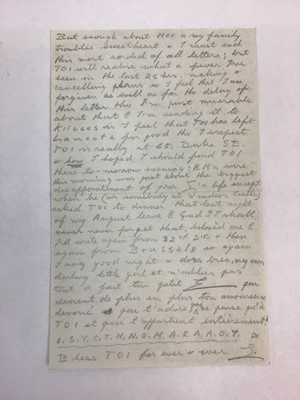 But enough about MOI & my family
troubles sweetheart & I must end
this most sordid of all letters; but
TOI will realise what a fever I've
been in the last 24 hrs. making &
cancelling plans & I feel that I am
forgiven as well as for the delay of
this letter tho' I'm just miserable
about that & I'm sending it to
as I feel that TOI has left
for good tho' I repeat
TOI is really at St. Duke St.
& how I hoped I should find TOI
there to-morrow evening: H.M.'s wire
this morning was just about the biggest
disappointment of your life except
when he (or somebody at Windsor Castle)
asked TOI to dinner that last night
of my August leave !! God I shall
never never forget that, beloved me &
I'll write again from 32nd Div. & then
again from Brussels so again
I say good night & dors bien, my own
darling little girl et n'oublies pas
tout à fait ton petit E qui
devient de plus en plus ton amoureux
dévoué & que t'adore & ne pense qu'à
TOI et qui t'appartient entièrement!
Bless TOI for ever & ever